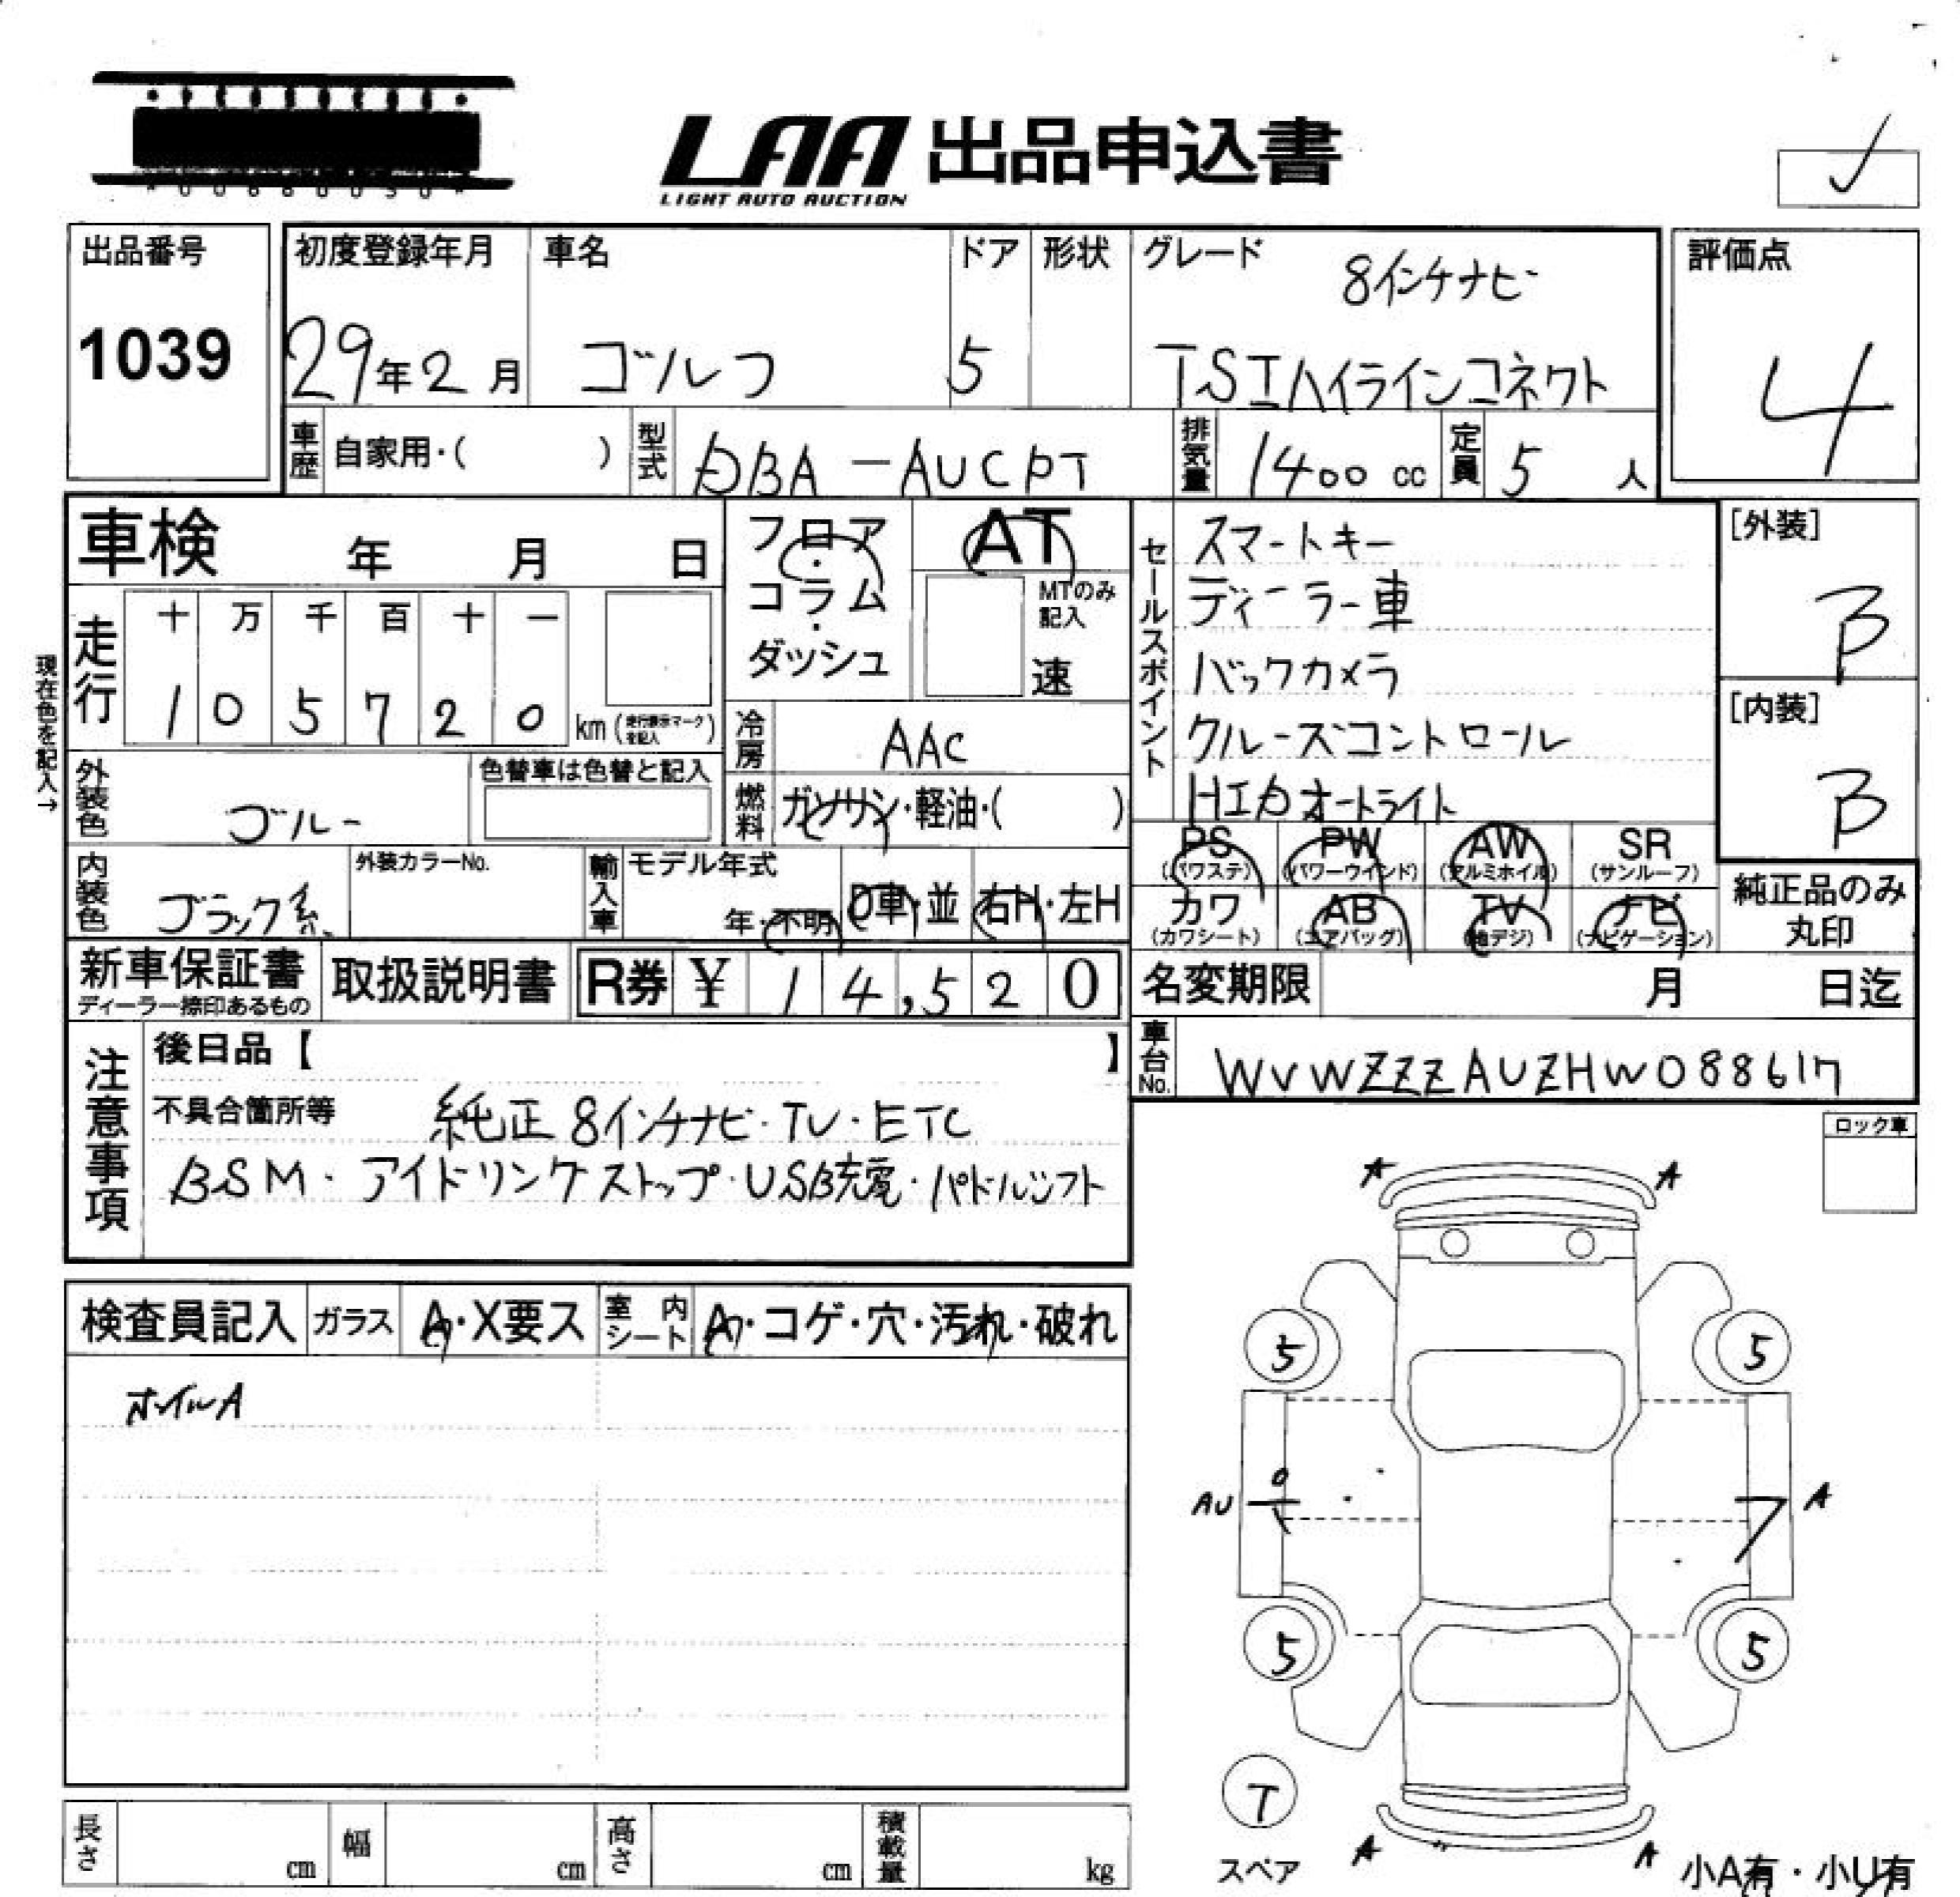 LAA 出品申込書
LIGHT AUTO AUCTION
出品番号
1039
初度登録年月
29年2月
車名
ゴルフ
ドア
5
形状
グレード
8インチナビ
TSIハイラインコネクト
評価点
4
車歴
自家用・( )
型式
DBA-AUCPT
排気量
1400 cc
定員
5 人
車検 年 月 日
フロア・コラム・ダッシュ
AT
MTのみ記入
速
走行
十 万 千 百 十 一
1 0 5 7 2 0 km (走行表示マーク を記入)
現在色を記入→
冷房
AAC
燃料
ガソリン・軽油・( )
外装色
ブルー
色替車は色替と記入
内装色
ブラック系
外装カラーNo.
輸入車
モデル年式
年・不明
D車・並
右H・左H
セールスポイント
スマートキー
ディーラー車
バックカメラ
クルーズコントロール
HIDオートライト
[外装]
B
[内装]
B
PS (パワステ)
PW (パワーウインド)
AW (アルミホイル)
SR (サンルーフ)
カワ (カワシート)
AB (エアバッグ)
TV (地デジ)
ナビ (ナビゲーション)
純正品のみ丸印
新車保証書
ディーラー捺印あるもの
取扱説明書
R券 ¥ 14,520
名変期限 月 日迄
車台No.
WVWZZZAUZHW088617
注意事項
後日品【 】
不具合箇所等
純正8インチナビ・TV・ETC
BSM・アイドリングストップ・USB充電・パドルシフト
ロック車
検査員記入
ガラス
A・X要ス
室内シート
A・コゲ・穴・汚れ・破れ
ホイルA
A A
5 5
AU A
5 5
T
スペア
A A
小A有・小U有
長さ cm
幅 cm
高さ cm
積載量 kg